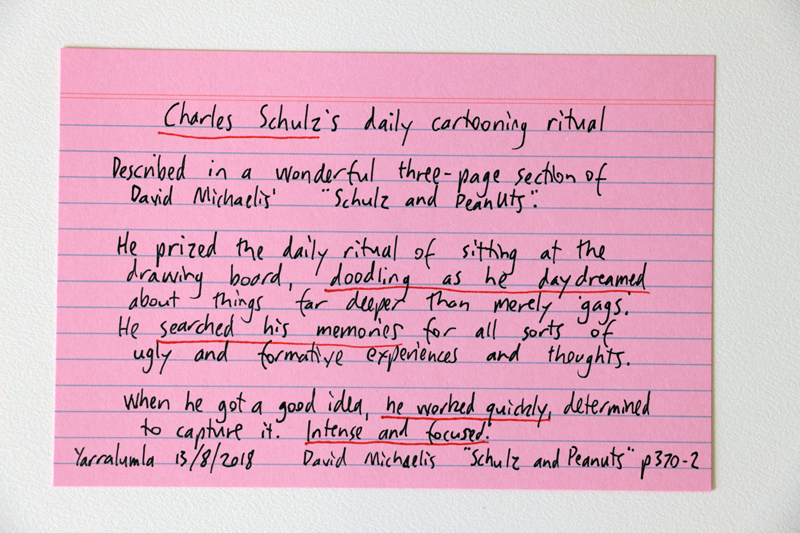 Charles Schulz's daily cartooning ritual
Described in a wonderful three-page section of
David Michaelis' "Schulz and Peanuts":
He prized the daily ritual of sitting at the
drawing board, doodling as he daydreamed
about things far deeper than merely 'gags'.
He searched his memories for all sorts of
ugly and formative experiences and thoughts.
When he got a good idea, he worked quickly, determined
to capture it. Intense and focused.
Yarralumla 13/8/2018 David Michaelis "Schulz and Peanuts" p370-2